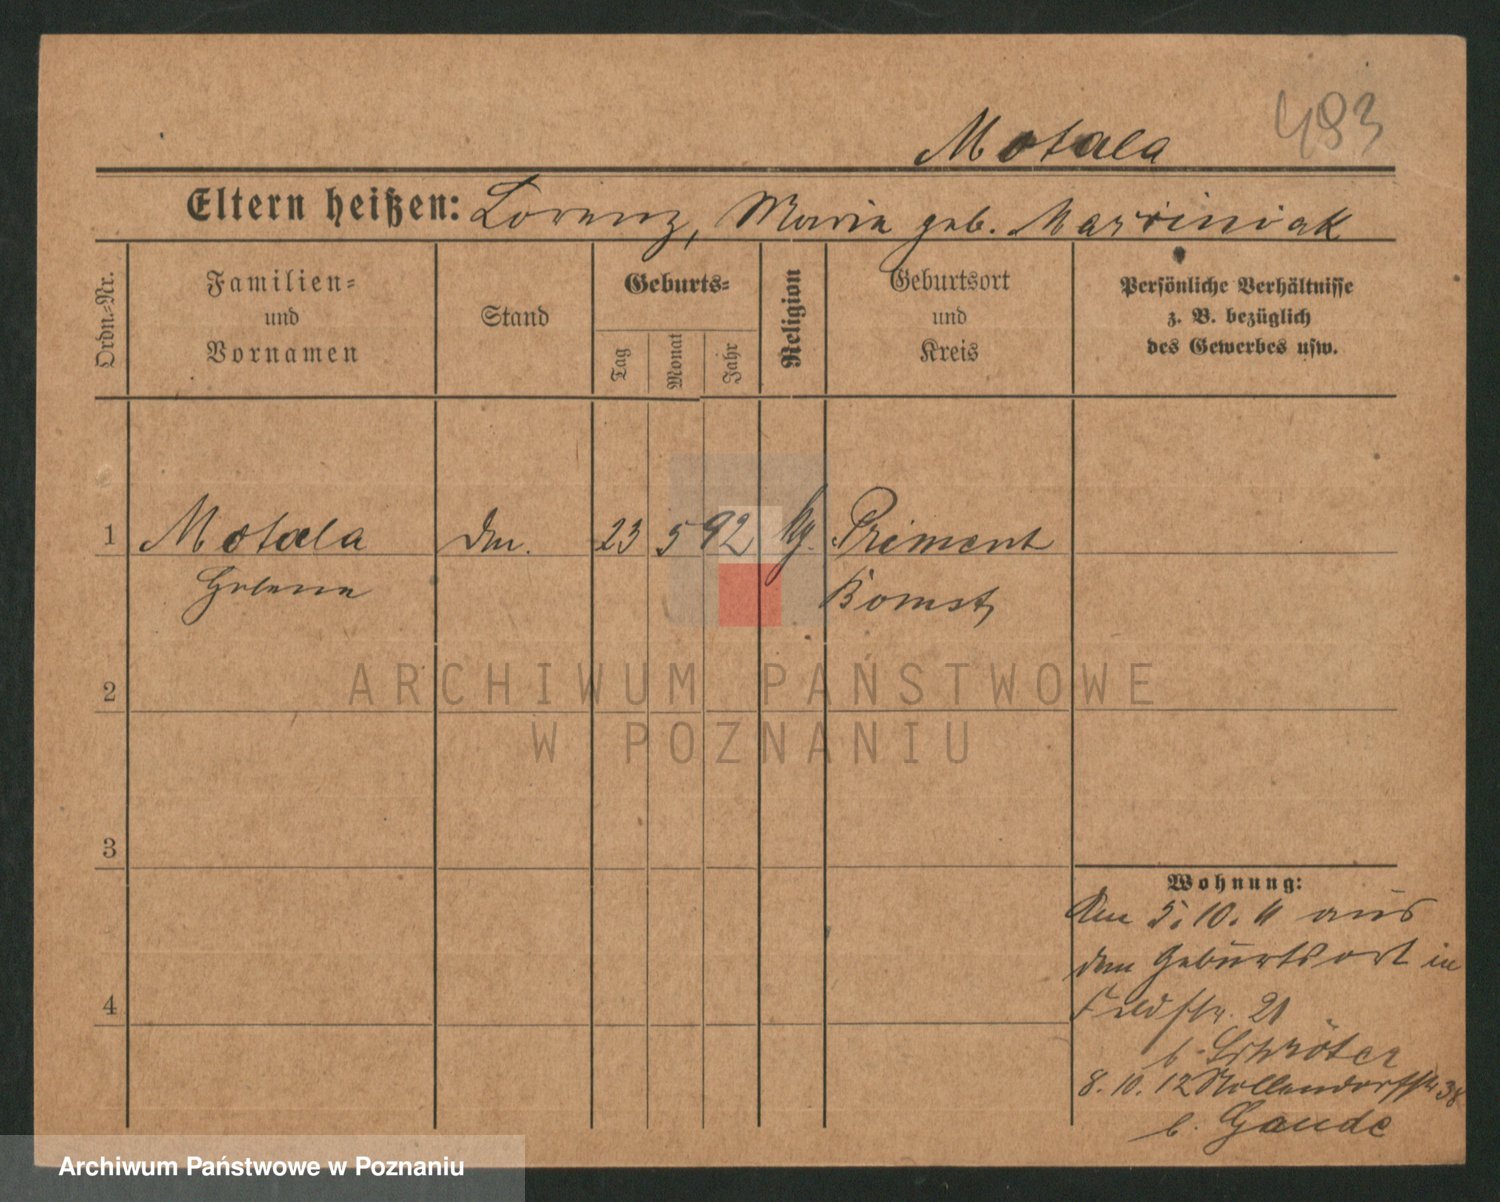 Motala 483
Eltern heißen: Lorenz, Maria geb. Marciniak
Ordn.-Nr.
Familien-
und
Vornamen
Stand
Geburts-
Tag
Monat
Jahr
Religion
Geburtsort
und
Kreis
Persönliche Verhältnisse
z. B. bezüglich
des Gewerbes usw.
1 Motala 23 5 92 Priment
Helena Bomst
2
3
4
Wohnung:
Am 5.10.11 aus
dem Geburtsort in
Feldstr. 21
b. Schröter
8.10.12 Nollendorfstr 38
b. Gaude
ARCHIWUM PAŃSTWOWE
W POZNANIU
Archiwum Państwowe w Poznaniu